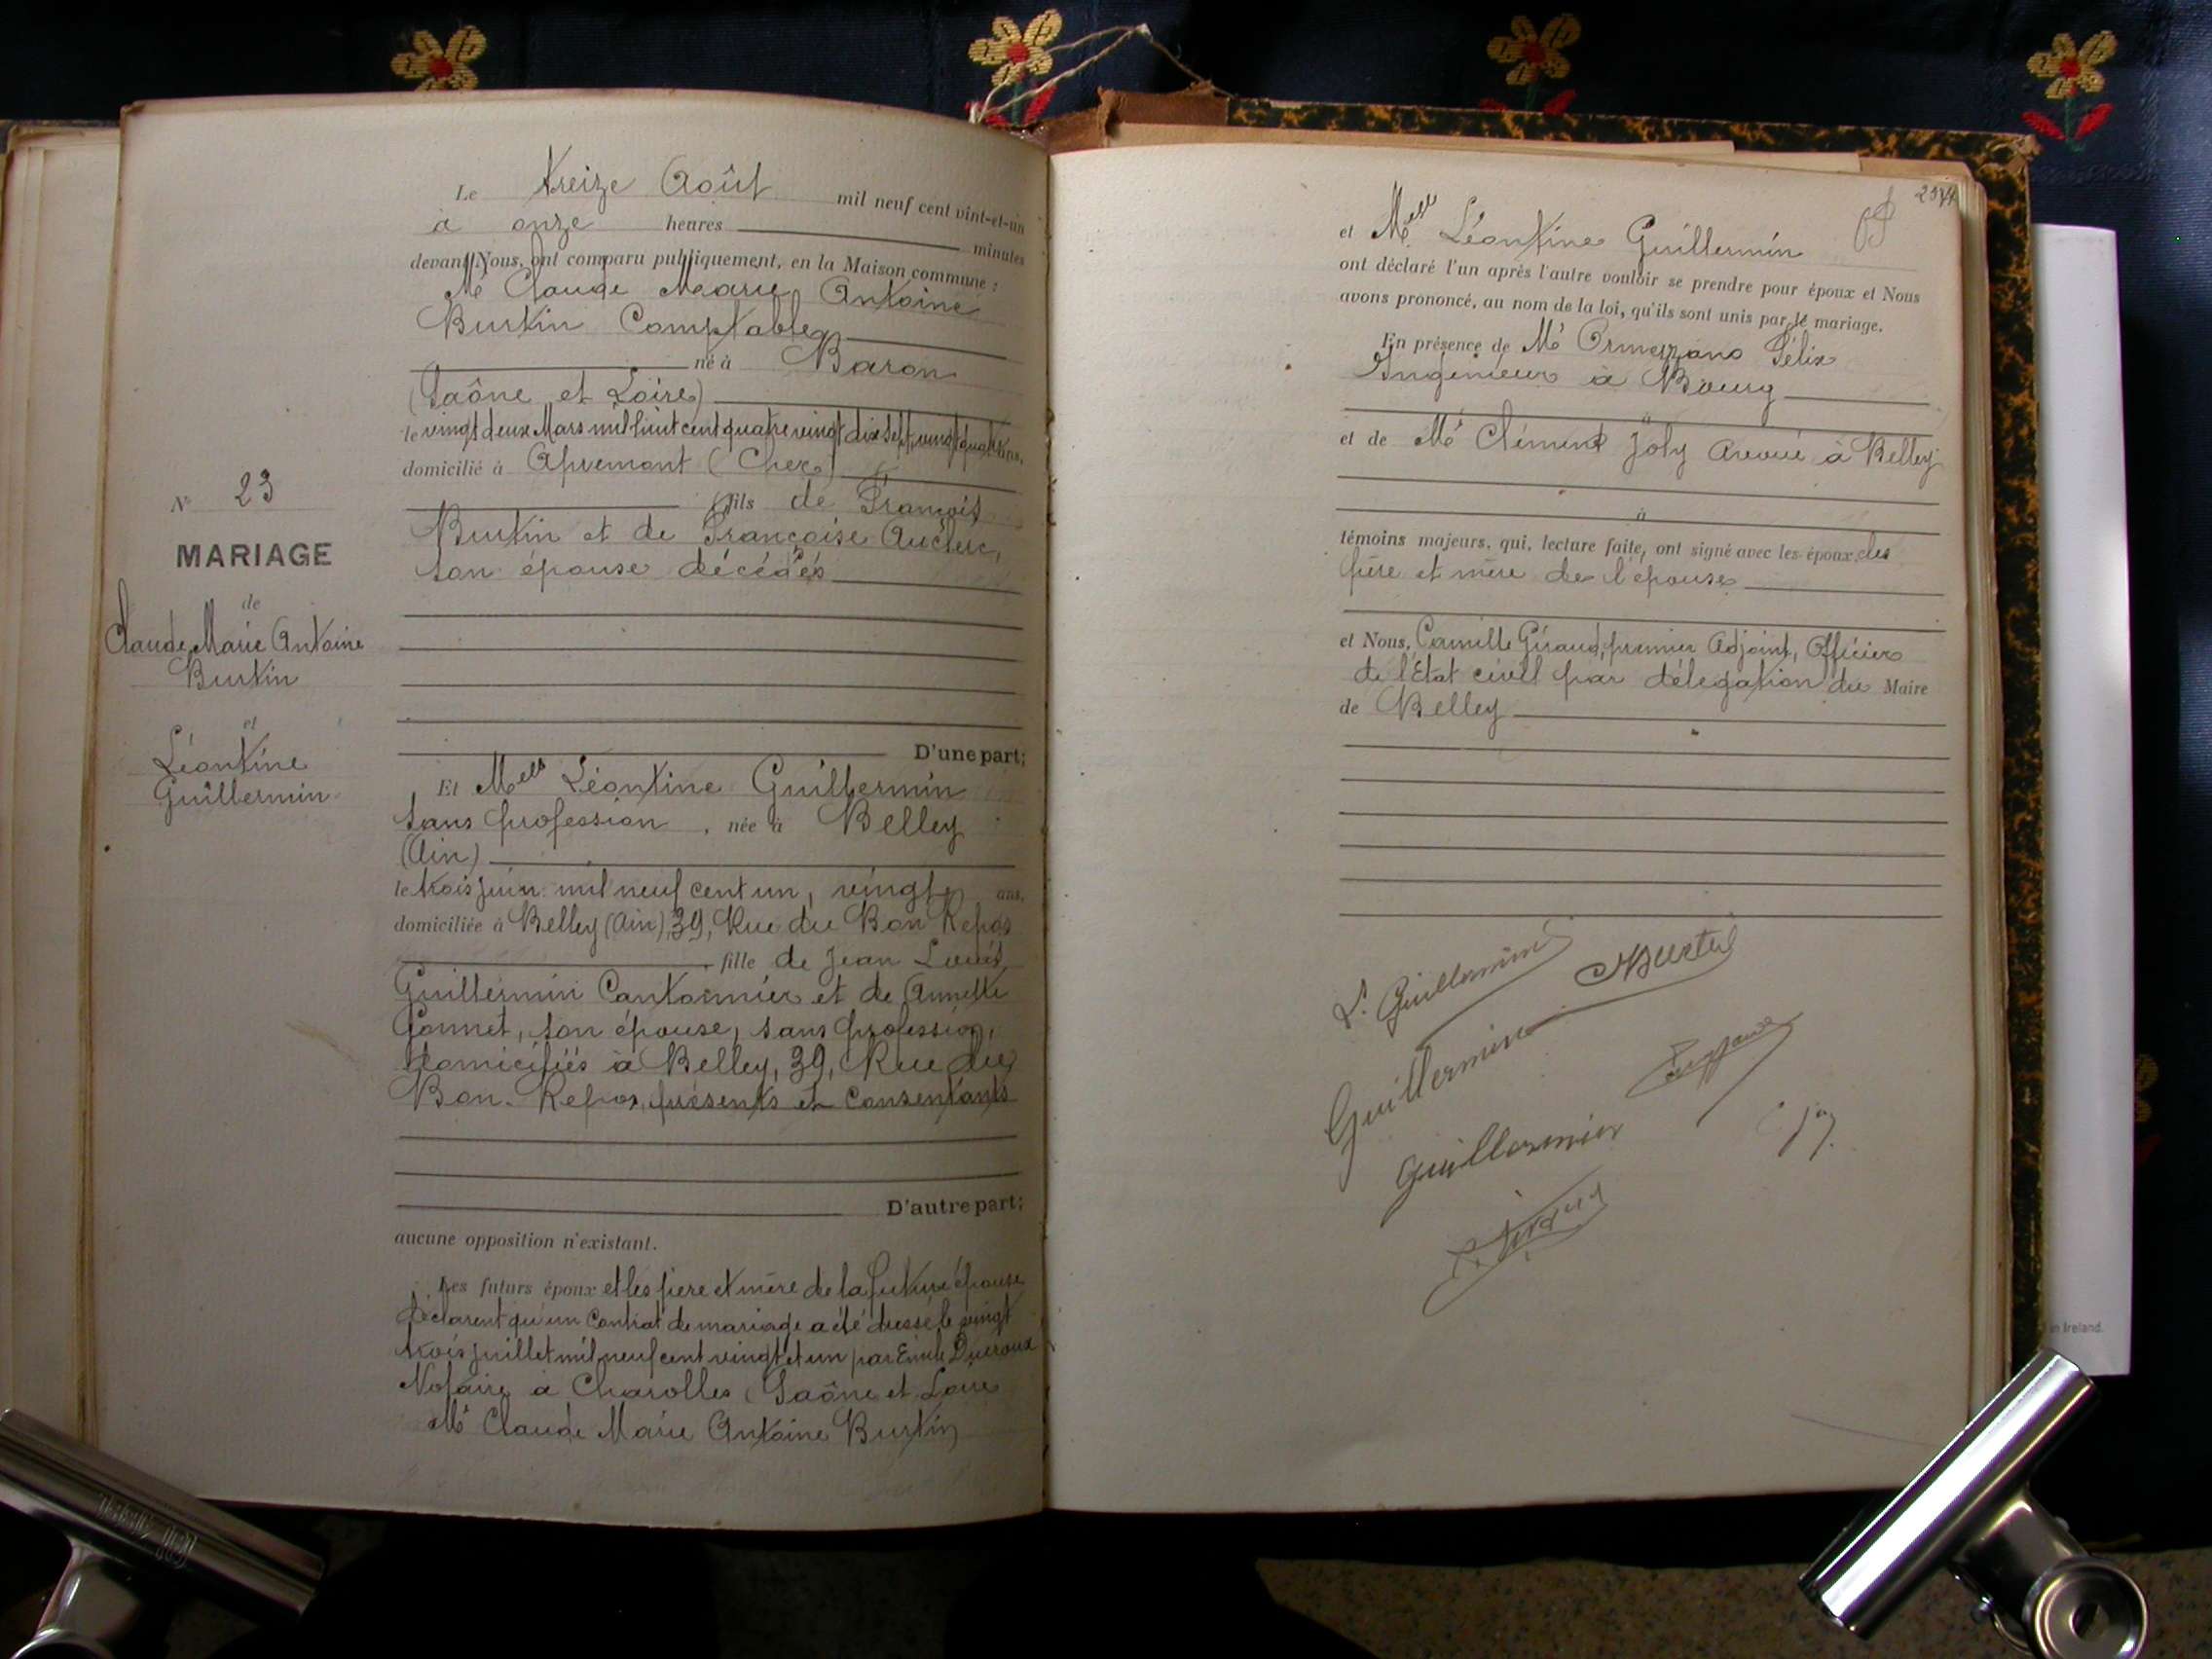 N° 23
MARIAGE
de
Claude Marie Antoine
Burtin
et
Léontine
Guillermin
Le Treize Août mil neuf cent vint-et-un
à onze heures minutes
devant Nous, ont comparu publiquement, en la Maison commune :
Mr Claude Marie Antoine
Burtin Comptable
né à Baron
(Saône et Loire)
le vingt deux Mars mil huit cent quatre vingt dix sept, vingt quatre ans,
domicilié à Apremont (Cher)
fils de François
Burtin et de Françoise Auclerc,
son épouse décédés
D'une part;
Et Melle Léontine Guillermin
sans profession, née à Belley
(Ain)
le trois juin mil neuf cent un, vingt ans,
domiciliée à Belley (Ain), 39, Rue du Bon Repos
fille de Jean Louis
Guillermin Cantonnier et de Annette
Gonnet, son épouse, sans profession,
domiciliés à Belley, 39, Rue du
Bon-Repos, présents et consentants
D'autre part;
aucune opposition n'existant.
Les futurs époux et les père et mère de la future épouse
déclarent qu'un contrat de mariage a été dressé le vingt
trois juillet mil neuf cent vingt et un par Emile Ducroux
Notaire à Charolles (Saône et Loire
Mr Claude Marie Antoine Burtin
et Melle Léontine Guillermin
ont déclaré l'un après l'autre vouloir se prendre pour époux et Nous
avons prononcé, au nom de la loi, qu'ils sont unis par le mariage.
En présence de Mr Ormezzano Félix
Ingénieur à Bourg
à
et de Mr Clément Joly Avoué à Belley
à
témoins majeurs, qui, lecture faite, ont signé avec les époux, les
père et mère de l'épouse
et Nous, Camille Giraud, premier Adjoint, Officier
de l'Etat civil par délégation du Maire
de Belley
L. Guillermin
Burtin
Guillermin
Guillermin
in Ireland.